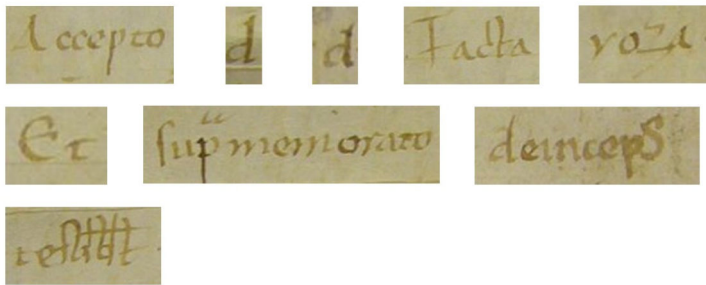 Accepto d d Facta roza
Et sup memorato deinceps